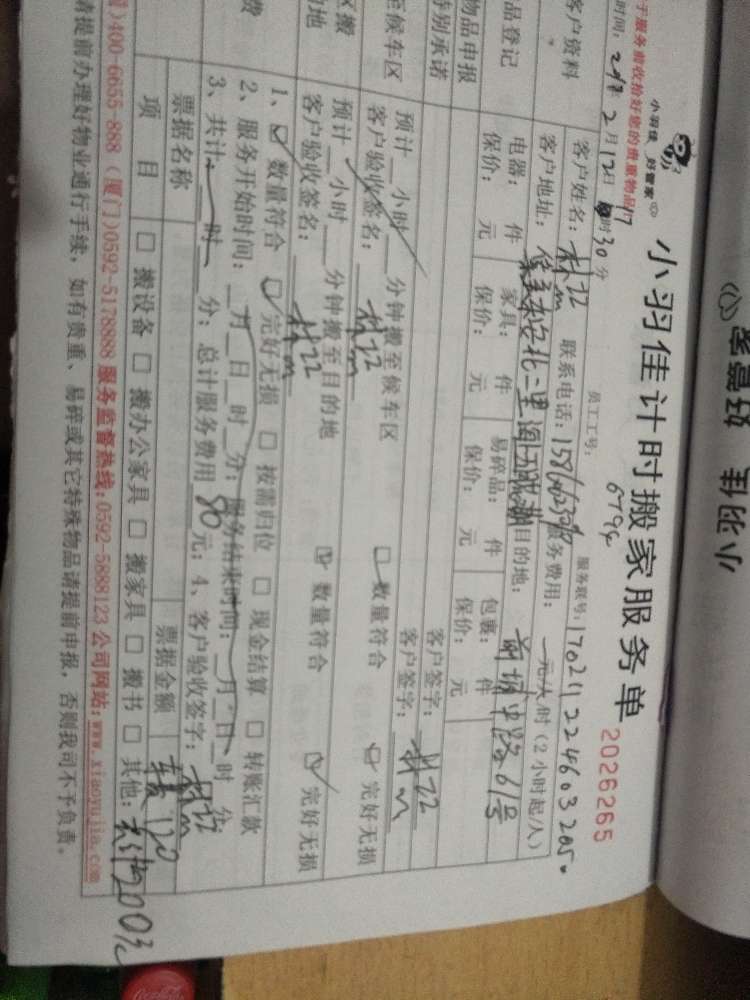 小羽佳 好管家
小羽佳计时搬家服务单
2026265
于服务前收拾好您的贵重物品!
员工工号: 6794
服务联号: 170211224603205
时间: 2017年2月12日 17时30分
客户资料
客户姓名:
联系电话:
服务费用: 元/人/时(2小时起/人)
客户地址:
目的地: 前埔中路61号
品登记
电器: 件
家具: 件
易碎品: 件
包裹: 件
保价: 元
保价: 元
保价: 元
保价: 元
物品申报
客户签字:
特别承诺
客户签字:
至候车区
预计 小时 分钟搬至候车区
客户验收签名:
数量符合
完好无损
区搬
的地
预计 小时 分钟搬至目的地
客户验收签名:
数量符合
完好无损
费
1、 数量符合 完好无损 按需归位 现金结算 转账汇款
2、服务开始时间: 月 日 时 分; 服务结束时间: 月 日 时 分;
3、共计: 时 分; 总计服务费用 80 元; 4、客户验收签字:
票据名称
票据金额
120
项 目
搬设备 搬办公家具 搬家具 搬书 其他: 200元
)400-6655-888 (厦门)0592-5178888 服务监督热线:0592-5888123 公司网站:www.xiaoyujia.com
请提前办理好物业通行手续, 如有贵重、易碎或其它特殊物品请提前申报, 否则我司不予负责。
小羽佳 好管家